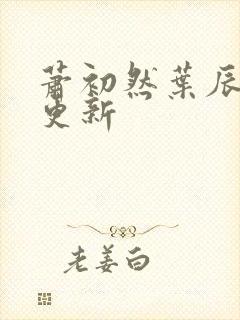 萧初然叶辰
更新
老姜白